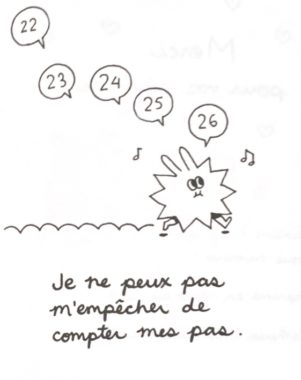 22
23
24
25
26
Je ne peux pas
m'empêcher de
compter mes pas.